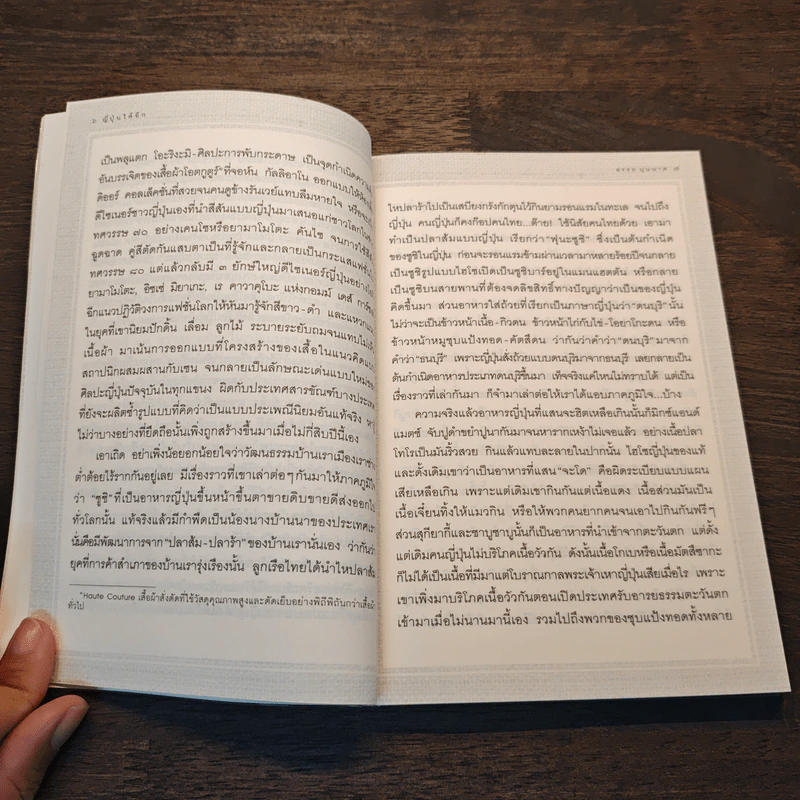 ๖ ญี่ปุ่นได้อีก
เป็นพลุแตก โอะริงะมิ-ศิลปะการพับกระดาษ เป็นจุดกำเนิดความ
อันบรรเจิดของเสื้อผ้าโอตกูตูร์* ที่จอห์น กัลลิอาโน ออกแบบให้ห้อง
ดิออร์ คอลเล็คชั่นที่สวยจนคนดูข้างรันเวย์แทบลืมหายใจ หรือจะ
ดีไซเนอร์ชาวญี่ปุ่นเองที่นำสีสันแบบญี่ปุ่นมาเสนอแก่ชาวโลกใน
ทศวรรษ ๗๐ อย่างเคนโซหรือยามาโมโตะ คันไซ จนการใช้สี
ฉูดฉาด คู่สีตัดกันแสบตาเป็นที่รู้จักและกลายเป็นกระแสแฟชั่น
ทศวรรษ ๘๐ แต่แล้วกลับมี ๓ ยักษ์ใหญ่ดีไซเนอร์ญี่ปุ่นอย่าง
ยามาโมโตะ, อิซเซ่ มิยาเกะ, เร คาวาคุโบะ แห่งกอมม์ เดส์ การ์
ฉีกแนวปฏิวัติวงการแฟชั่นโลกให้หันมารู้จักสีขาว-ดำ และแหวก
ในยุคที่เขานิยมปักดิ้น เลื่อม ลูกไม้ ระบายระยับถมจนแทบไม่เห็น
เนื้อผ้า มาเน้นการออกแบบที่โครงสร้างของเสื้อในแนวคิดแบบ
สถาปนิกผสมผสานกับเซน จนกลายเป็นลักษณะเด่นแบบใหม่ของ
ศิลปะญี่ปุ่นปัจจุบันในทุกแขนง ผิดกับประเทศสารขัณฑ์บางประเทศ
ที่ยังจะผลิตซ้ำรูปแบบที่คิดว่าเป็นแบบประเพณีนิยมอันแท้จริง
ไม่ว่าบางอย่างที่ยึดถือนั้นเพิ่งถูกสร้างขึ้นมาเมื่อไม่กี่สิบปีนี้เอง
เอาเถิด อย่าเพิ่งน้อยอกน้อยใจว่าวัฒนธรรมบ้านเราเมืองเราช่าง
ต่ำต้อยไร้รากกันอยู่เลย มีเรื่องราวที่เขาเล่าต่อๆ กันมาให้ภาคภูมิใจ
ว่า "ซูชิ" ที่เป็นอาหารญี่ปุ่นขึ้นหน้าขึ้นตาขายดิบขายดีส่งออกไป
ทั่วโลกนั้น แท้จริงแล้วมีกำพืดเป็นน้องนางบ้านนาของประเทศเรา
นั่นคือมีพัฒนาการจาก "ปลาส้ม-ปลาร้า" ของบ้านเรานั่นเอง ว่ากันว่า
ยุคที่การค้าสำเภาของบ้านเรารุ่งเรืองนั้น ลูกเรือไทยได้นำไหปลาส้ม
*Haute Couture เสื้อผ้าสั่งตัดที่ใช้วัสดุคุณภาพสูงและตัดเย็บอย่างพิถีพิถันกว่าเสื้อผ้า
ทั่วไป
ไหปลาร้าไปเป็นเสบียงกรังกักตุนไว้กินยามรอนแรมในทะเล จนไปถึง
ญี่ปุ่น คนญี่ปุ่นก็คงก๊อปคนไทย...ต๊าย! ใช้นิสัยคนไทยด้วย เอามา
ทำเป็นปลาส้มแบบญี่ปุ่น เรียกว่า "ฟุนะซูชิ" ซึ่งเป็นต้นกำเนิด
ของซูชิในญี่ปุ่น ก่อนจะรอนแรมข้ามผ่านเวลามาหลายร้อยปีจนกลาย
เป็นซูชิรูปแบบไฮโซเปิดเป็นซูชิบาร์อยู่ในแมนแฮตตัน หรือกลาย
เป็นซูชิบนสายพานที่ต้องจดลิขสิทธิ์ทางปัญญาว่าเป็นของญี่ปุ่น
คิดขึ้นมา ส่วนอาหารใส่ถ้วยที่เรียกเป็นภาษาญี่ปุ่นว่า "ดนบุริ" นั้น
ไม่ว่าจะเป็นข้าวหน้าเนื้อ-กิวดน ข้าวหน้าไก่กับไข่-โอยาโกะดน หรือ
ข้าวหน้าหมูชุบแป้งทอด-คัตสึดน ว่ากันว่าคำว่า "ดนบุริ" มาจาก
คำว่า "ธนบุรี" เพราะญี่ปุ่นสั่งถ้วยแบบดนบุริมาจากธนบุรี เลยกลายเป็น
ต้นกำเนิดอาหารประเภทดนบุริขึ้นมา เท็จจริงแค่ไหนไม่ทราบได้ แต่เป็น
เรื่องราวที่เล่ากันมา ก็จำมาเล่าต่อให้เราได้แอบภาคภูมิใจ...บ้าง
ความจริงแล้วอาหารญี่ปุ่นที่แสนจะฮิตเหลือเกินนั้นก็มิกซ์แอนด์
แมตช์ จับปูดำขยำปูนากันมาจนหารากเหง้าไม่เจอแล้ว อย่างเนื้อปลา
โทโรเป็นมันริ้วสวย กินแล้วแทบละลายในปากนั้น ไฮโซญี่ปุ่นของแท้
และดั้งเดิมเขาว่าเป็นอาหารที่แสน "จะโด" คือผิดระเบียบแบบแผน
เสียเหลือเกิน เพราะแต่เดิมเขากินกันแต่เนื้อแดง เนื้อส่วนมันเป็น
เนื้อเจี๋ยนทิ้งให้แมวกิน หรือให้พวกคนยากคนจนเอาไปกินกันฟรีๆ
ส่วนสุกียากี้และชาบูชาบูนั้นก็เป็นอาหารที่นำเข้าจากตะวันตก แต่ดั้ง
แต่เดิมคนญี่ปุ่นไม่บริโภคเนื้อวัวกัน ดังนั้นเนื้อโกเบหรือเนื้อมัตสึซากะ
ก็ไม่ได้เป็นเนื้อที่มีมาแต่โบราณกาลพระเจ้าเหาญี่ปุ่นเสียเมื่อไร เพราะ
เขาเพิ่งมาบริโภคเนื้อวัวกันตอนเปิดประเทศรับอารยธรรมตะวันตก
เข้ามาเมื่อไม่นานมานี้เอง รวมไปถึงพวกของชุบแป้งทอดทั้งหลาย